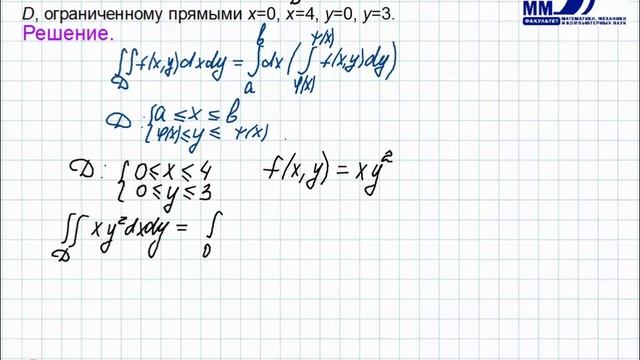 D, ограниченному прямыми x=0, x=4, y=0, y=3.
ММ
ФАКУЛЬТЕТ МАТЕМАТИКИ, МЕХАНИКИ И КОМПЬЮТЕРНЫХ НАУК
Решение.
∬_D f(x,y)dxdy = ∫_a^b dx ( ∫_{φ(x)}^{ψ(x)} f(x,y)dy )
D: { a ≤ x ≤ b
φ(x) ≤ y ≤ ψ(x).
D: { 0 ≤ x ≤ 4 f(x,y) = xy²
0 ≤ y ≤ 3
∬_D xy²dxdy = ∫_0